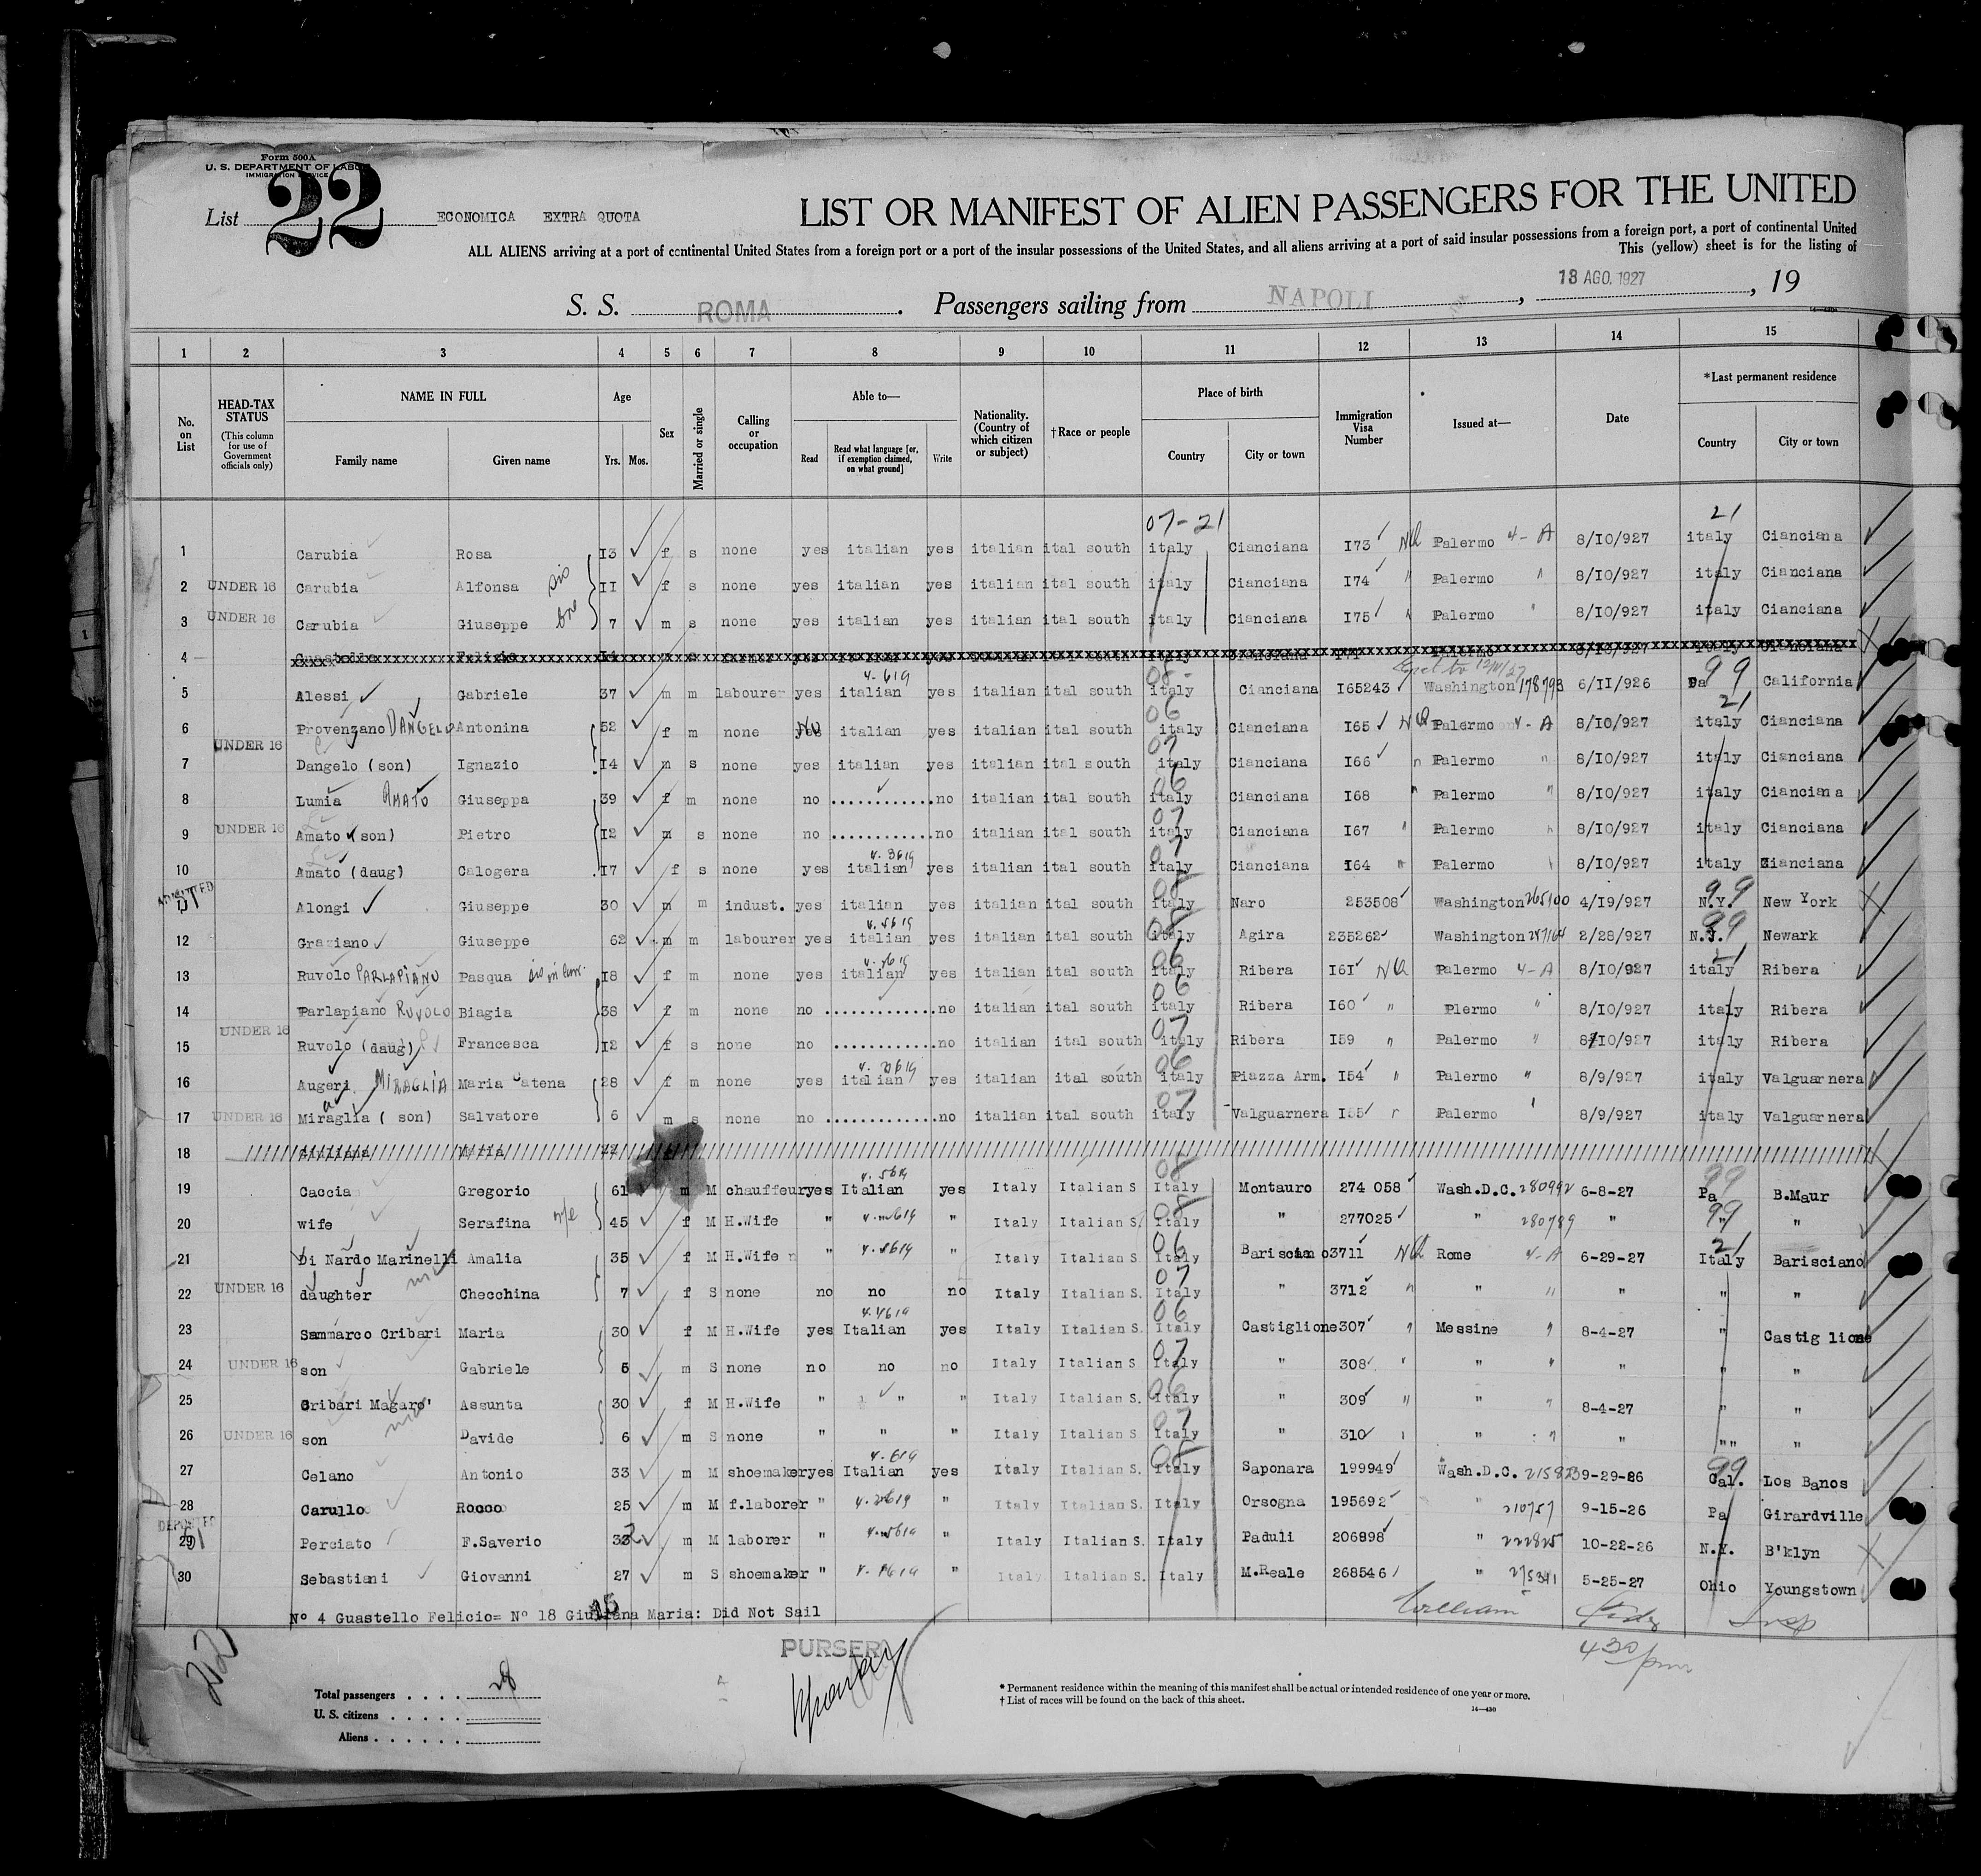 Form 500A
U. S. DEPARTMENT OF LABOR
IMMIGRATION SERVICE
List 22 ECONOMICA EXTRA QUOTA
LIST OR MANIFEST OF ALIEN PASSENGERS FOR THE UNITED
ALL ALIENS arriving at a port of continental United States from a foreign port or a port of the insular possessions of the United States, and all aliens arriving at a port of said insular possessions from a foreign port, a port of continental United
This (yellow) sheet is for the listing of
S. S. ROMA. Passengers sailing from NAPOLI, 13 AGO. 1927, 19
1 2 3 4 5 6 7 8 9 10 11 12 13 14 15
No. on List
HEAD-TAX STATUS
(This column for use of Government officials only)
NAME IN FULL
Family name Given name
Age
Yrs. Mos.
Sex
Married or single
Calling or occupation
Able to—
Read Read what language [or, if exemption claimed, on what ground] Write
Nationality. (Country of which citizen or subject)
†Race or people
Place of birth
Country City or town
Immigration Visa Number
Issued at—
Date
*Last permanent residence
Country City or town
07-21 21
1 Carubia Rosa I3 f s none yes italian yes italian ital south italy Cianciana I73 NQ Palermo 4-A 8/I0/927 italy Cianciana
2 UNDER 16 Carubia Alfonsa sis II f s none yes italian yes italian ital south italy Cianciana I74 " Palermo " 8/I0/927 italy Cianciana
3 UNDER 16 Carubia Giuseppe bro 7 m s none yes italian yes italian ital south italy Cianciana I75 " Palermo " 8/I0/927 italy Cianciana
4
4-619 08- 99
5 Alessi Gabriele 37 m m labourer yes italian yes italian ital south italy Cianciana I65243 Washington 178793 6/II/926 Pa California
06 21
6 Provenzano DANGELO Antonina 52 f m none No italian yes italian ital south italy Cianciana I65 NQ Palermo 4-A 8/I0/927 italy Cianciana
UNDER 16 07
7 Dangelo (son) Ignazio I4 m s none yes italian yes italian ital south italy Cianciana I66 " Palermo " 8/I0/927 italy Cianciana
06
8 Lumia AMATO Giuseppa 39 f m none no ............ no italian ital south italy Cianciana I68 " Palermo " 8/I0/927 italy Cianciana
07
9 UNDER 16 Amato (son) Pietro I2 m s none no ............ no italian ital south italy Cianciana I67 " Palermo " 8/I0/927 italy Cianciana
4.3619 07
10 Amato (daug) Calogera I7 f s none yes italian yes italian ital south italy Cianciana I64 " Palermo " 8/I0/927 italy Cianciana
ADMITTED 08 99
11 Alongi Giuseppe 30 m m indust. yes italian yes italian ital south italy Naro 253508 Washington 265100 4/I9/927 N.Y. New York
4.5619 08 99
12 Graziano Giuseppe 62 m m labourer yes italian yes italian ital south italy Agira 235262 Washington 2/28/927 N.J. Newark
06 21
13 Ruvolo PARLAPIANO Pasqua sis in law I8 f m none yes italian yes italian ital south italy Ribera I6I NQ Palermo 4-A 8/I0/927 italy Ribera
06
14 Parlapiano RUVOLO Biagia 38 f m none no ............ no italian ital south italy Ribera I60 " Plermo " 8/I0/927 italy Ribera
UNDER 16 07
15 Ruvolo (daug) Francesca I2 f s none no ............ no italian ital south italy Ribera I59 " Palermo " 8/I0/927 italy Ribera
06
16 Augeri MIRAGLIA Maria Catena 28 f m none yes italian yes italian ital south italy Piazza Arm. I54 " Palermo " 8/9/927 italy Valguarnera
07
17 UNDER 16 Miraglia (son) Salvatore 6 m s none no ............ no italian ital south italy Valguarnera I55 Palermo " 8/9/927 italy Valguarnera
18 Giuliana Maria
4.5619 08 99
19 Caccia Gregorio 61 m M chauffeur yes Italian yes Italy Italian S Italy Montauro 274 058 Wash.D.C. 280992 6-8-27 Pa B.Maur
08 99
20 wife Serafina wfe 45 f M H.Wife " " Italy Italian S. Italy " 277025 " 280789 " " "
06 21
21 Di Nardo Marinelli Amalia 35 f M H.Wife " " Italy Italian S. Italy Barisciano 3711 NQ Rome 4-A 6-29-27 Italy Barisciano
07
22 UNDER 16 daughter Checchina 7 f S none no no no Italy Italian S. Italy " 3712 " " " " " "
4.4619 06
23 Sammarco Cribari Maria 30 f M H.Wife yes Italian yes Italy Italian S. Italy Castiglione 307 " Messine " 8-4-27 " Castiglione
07
24 UNDER 16 son Gabriele 6 m S none no no no Italy Italian S Italy " 308 " " " " " "
06
25 Cribari Magaro' Assunta 30 f M H.Wife " " " Italy Italian S. Italy " 309 " " " 8-4-27 " "
07
26 UNDER 16 son Davide 6 m S none " " " Italy Italian S. Italy " 310 " " " " "" "
4.619 08 99
27 Celano Antonio 33 m M shoemaker yes Italian yes Italy Italian S. Italy Saponara 199949 Wash.D.C. 9-29-26 Cal. Los Banos
28 Carullo Rocco 25 m M f.laborer " " Italy Italian S. Italy Orsogna 195692 " 210757 9-15-26 Pa Girardville
DEPORTED
29 Perciato F.Saverio 32 m M laborer " " Italy Italian S. Italy Paduli 206898 " 222825 10-22-26 N.Y. B'klyn
30 Sebastiani Giovanni 27 m S shoemaker " " Italy Italian S. Italy M.Reale 268546 " 275341 5-25-27 Ohio Youngstown
Nº 4 Guastello Felicio= Nº 18 Giuliana Maria: Did Not Sail
William Insp
4 30 pm
PURSER
Total passengers . . . . 28
U. S. citizens . . . . .
Aliens . . . . . .
* Permanent residence within the meaning of this manifest shall be actual or intended residence of one year or more.
† List of races will be found on the back of this sheet.
14—430